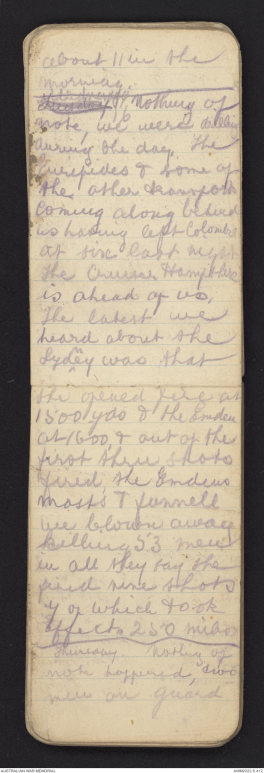 about 11 in the
morning.
Wednesday Nothing of
note, we were drilling
during the day. The
Euripides & some of
the other transports
coming along behind
us having left Colombo
at six last night
the Cruiser Hampshire
is ahead of us.
The latest we
heard about the
Sydney was that
she opened fire at
1500 yds & the Emden
at 1600, & out of the
first three shots
fired the Emdens
masts & funnell
we blown away
killing 53 men
in all they say she
fired nine shots
7 of which took
effects 250 miles
Thursday. Nothing of
note happered, two
men on guard
AUSTRALIAN WAR MEMORIAL